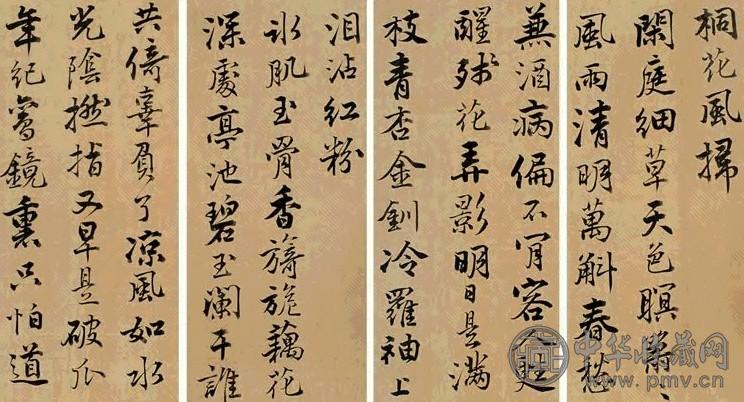 桐花風掃
閑庭細草天色暝濛、
風雨清明萬斛春愁
兼酒病偏不肯容人甦
醒殘花弄影明日是滿
枝青杏金釧冷羅袖上
泪沾紅粉
冰肌玉骨香旖旎藕花
深處亭池碧玉闌干誰
共倚辜負了涼風如水
光陰撚指又早是破瓜
年紀鸞鏡裏只怕道
中华收藏网
www.pmv.cn